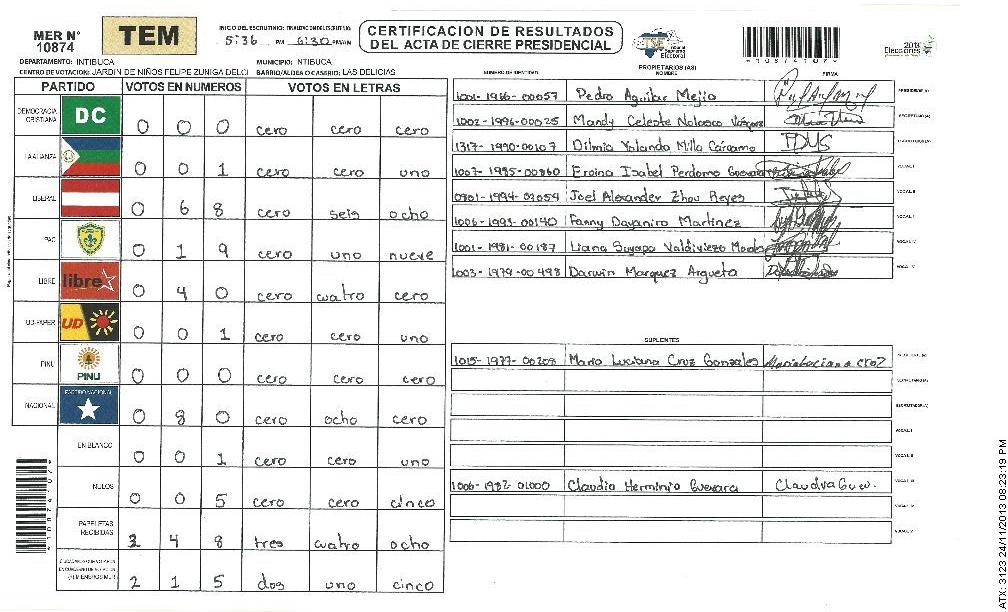 MER N°
10874
TEM
INICIO DEL ESCRUTINIO:
5:36 PM 6:30 PM/AM
CERTIFICACION DE RESULTADOS
DEL ACTA DE CIERRE PRESIDENCIAL
TSE Tribunal
Supremo
Electoral
2013
Elecciones
DEPARTAMENTO: INTIBUCA MUNICIPIO: NTIBUCA
CENTRO DE VOTACION: JARDIN DE NIÑOS FELIPE ZUNIGA DELCI BARRIO/ALDEA O CASERIO: LAS DELICIAS
PROPIETARIOS (AS)
NUMERO DE IDENTIDAD NOMBRE FIRMA
PARTIDO VOTOS EN NUMEROS VOTOS EN LETRAS
DEMOCRACIA CRISTIANA DC 0 0 0 cero cero cero
LA ALIANZA 0 0 1 cero cero uno
LIBERAL 0 6 8 cero seis ocho
PAC 0 1 9 cero uno nueve
LIBRE libre 0 4 0 cero cuatro cero
UD-FAPER UD 0 0 1 cero cero uno
PINU PINU 0 0 0 cero cero cero
NACIONAL PARTIDO NACIONAL 0 8 0 cero ocho cero
EN BLANCO 0 0 1 cero cero uno
NULOS 0 0 5 cero cero cinco
PAPELETAS RECIBIDAS 3 4 8 tres cuatro ocho
(+) MIEMBROS MER 2 1 5 dos uno cinco
1001-1966-00057 Pedro Aguilar Mejia PRESIDENTE (A)
1002-1996-00025 Mandy Celeste Nolasco Vasquez SECRETARIO (A)
1317-1990-00107 Dilmia Yolando Milla Cárcamo ESCRUTADOR (A)
1007-1985-00860 Eroina Isabel Perdomo Guevara VOCAL I
0801-1994-03054 Joel Alexander Zhou Reyes VOCAL II
1006-1993-00140 Fanny Dayanira Martinez VOCAL III
1001-1981-00187 Liana Suyapa Valdiviezo VOCAL IV
1003-1979-00498 Darwin Marquez Argueta VOCAL V
SUPLENTES
1015-1977-00208 Maria Luciana Cruz Gonzales Maria Luciana Cruz PRESIDENTE (A)
SECRETARIO (A)
ESCRUTADOR (A)
VOCAL I
VOCAL II
1006-1982-01000 Claudia Herminia Guevara Claudia Guev. VOCAL III
VOCAL IV
VOCAL V
ATX: 3123 24/11/2013 08:23:19 PM